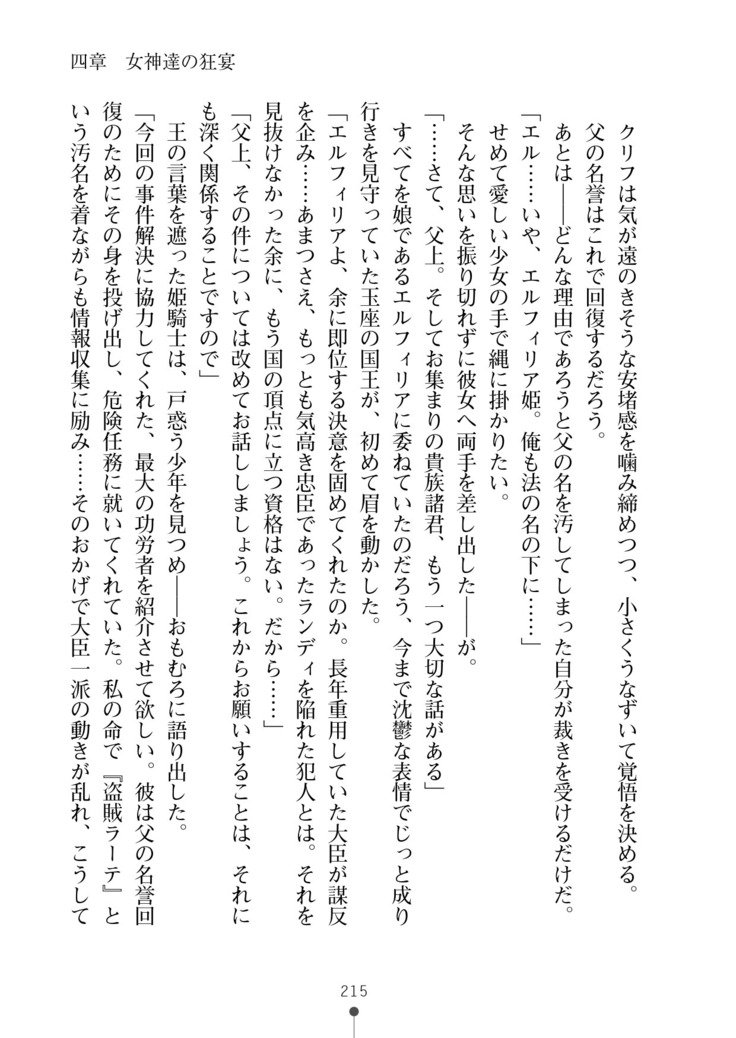 四章　女神達の狂宴
クリフは気が遠のきそうな安堵感を噛み締めつつ、小さくうなずいて覚悟を決める。
父の名誉はこれで回復するだろう。
あとは――どんな理由であろうと父の名を汚してしまった自分が裁きを受けるだけだ。
「エル……いや、エルフィリア姫。俺も法の名の下に……」
せめて愛しい少女の手で縄に掛かりたい。
そんな思いを振り切れずに彼女へ両手を差し出した――が。
「……さて、父上。そしてお集まりの貴族諸君、もう一つ大切な話がある」
すべてを娘であるエルフィリアに委ねていたのだろう、今まで沈鬱な表情でじっと成り
行きを見守っていた玉座の国王が、初めて眉を動かした。
「エルフィリアよ、余に即位する決意を固めてくれたのか。長年重用していた大臣が謀反
を企み……あまつさえ、もっとも気高き忠臣であったランディを陥れた犯人とは。それを
見抜けなかった余に、もう国の頂点に立つ資格はない。だから……」
「父上、その件については改めてお話ししましょう。これからお願いすることは、それに
も深く関係することですので」
王の言葉を遮った姫騎士は、戸惑う少年を見つめ――おもむろに語り出した。
「今回の事件解決に協力してくれた、最大の功労者を紹介させて欲しい。彼は父の名誉回
復のためにその身を投げ出し、危険任務に就いてくれていた。私の命で『盗賊ラーテ』と
いう汚名を着ながらも情報収集に励み……そのおかげで大臣一派の動きが乱れ、こうして
215